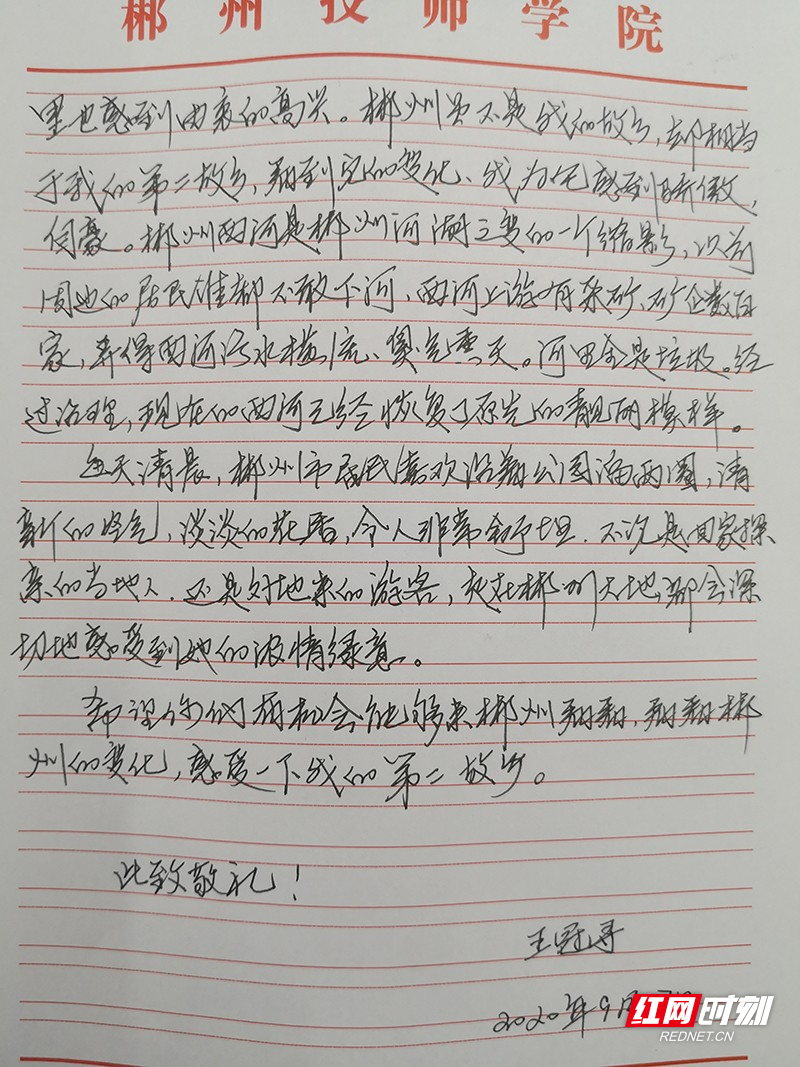 郴州技师学院
里也感到由衷的高兴。郴州虽不是我的故乡,却相当
于我的第二故乡,看到它的变化、我为它感到骄傲、
自豪。郴州两河是郴州河湖之变的一个缩影,以前
周边的居民谁都不敢下河,两河上游有采矿、矿企数百
家,弄得两河污水横流、臭气熏天。河里全是垃圾。经
过治理,现在的两河已经恢复了原先的模样。
每天清晨,郴州市居民喜欢沿着公园溜两圈,清
新的空气,淡淡的花香,令人非常舒坦.不论是回家探
亲的当地人.还是外地来的游客,在郴州大地,都会深
切地感受到她的浓情绿意。
希望你们有机会能够来郴州看看,看看郴
州的变化,感受一下我的第二故乡。
此致敬礼!
王冠
2020年9月
红网时刻
REDNET.CN